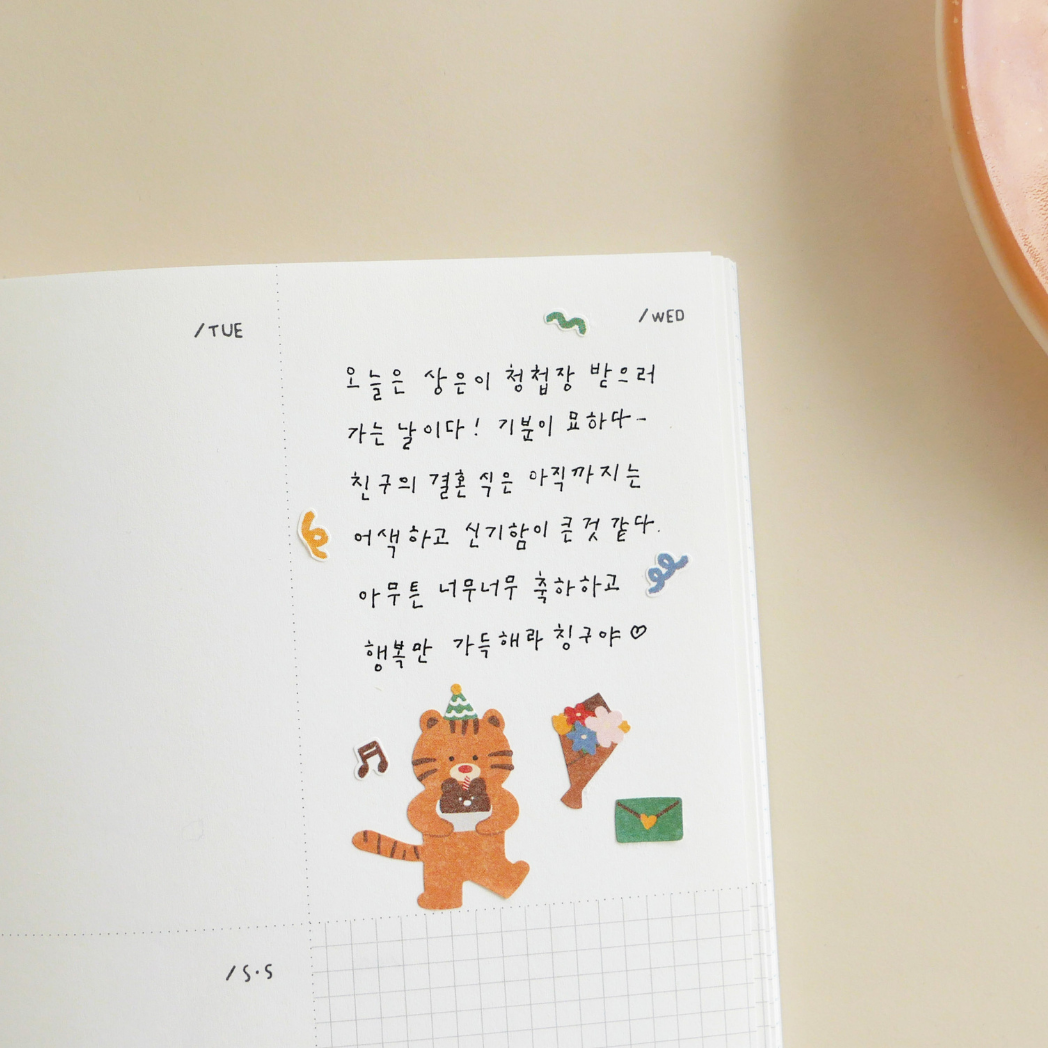 /TUE
/WED
오늘은 상은이 청첩장 받으러
가는 날이다! 기분이 묘하다-
친구의 결혼식은 아직까지는
어색하고 신기함이 큰것 같다.
아무튼 너무너무 축하하고
행복만 가득해라 칭구야♡
/S·S